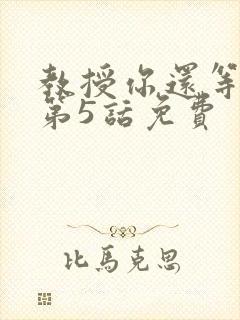 教授你還等
第5話免費
比馬克思